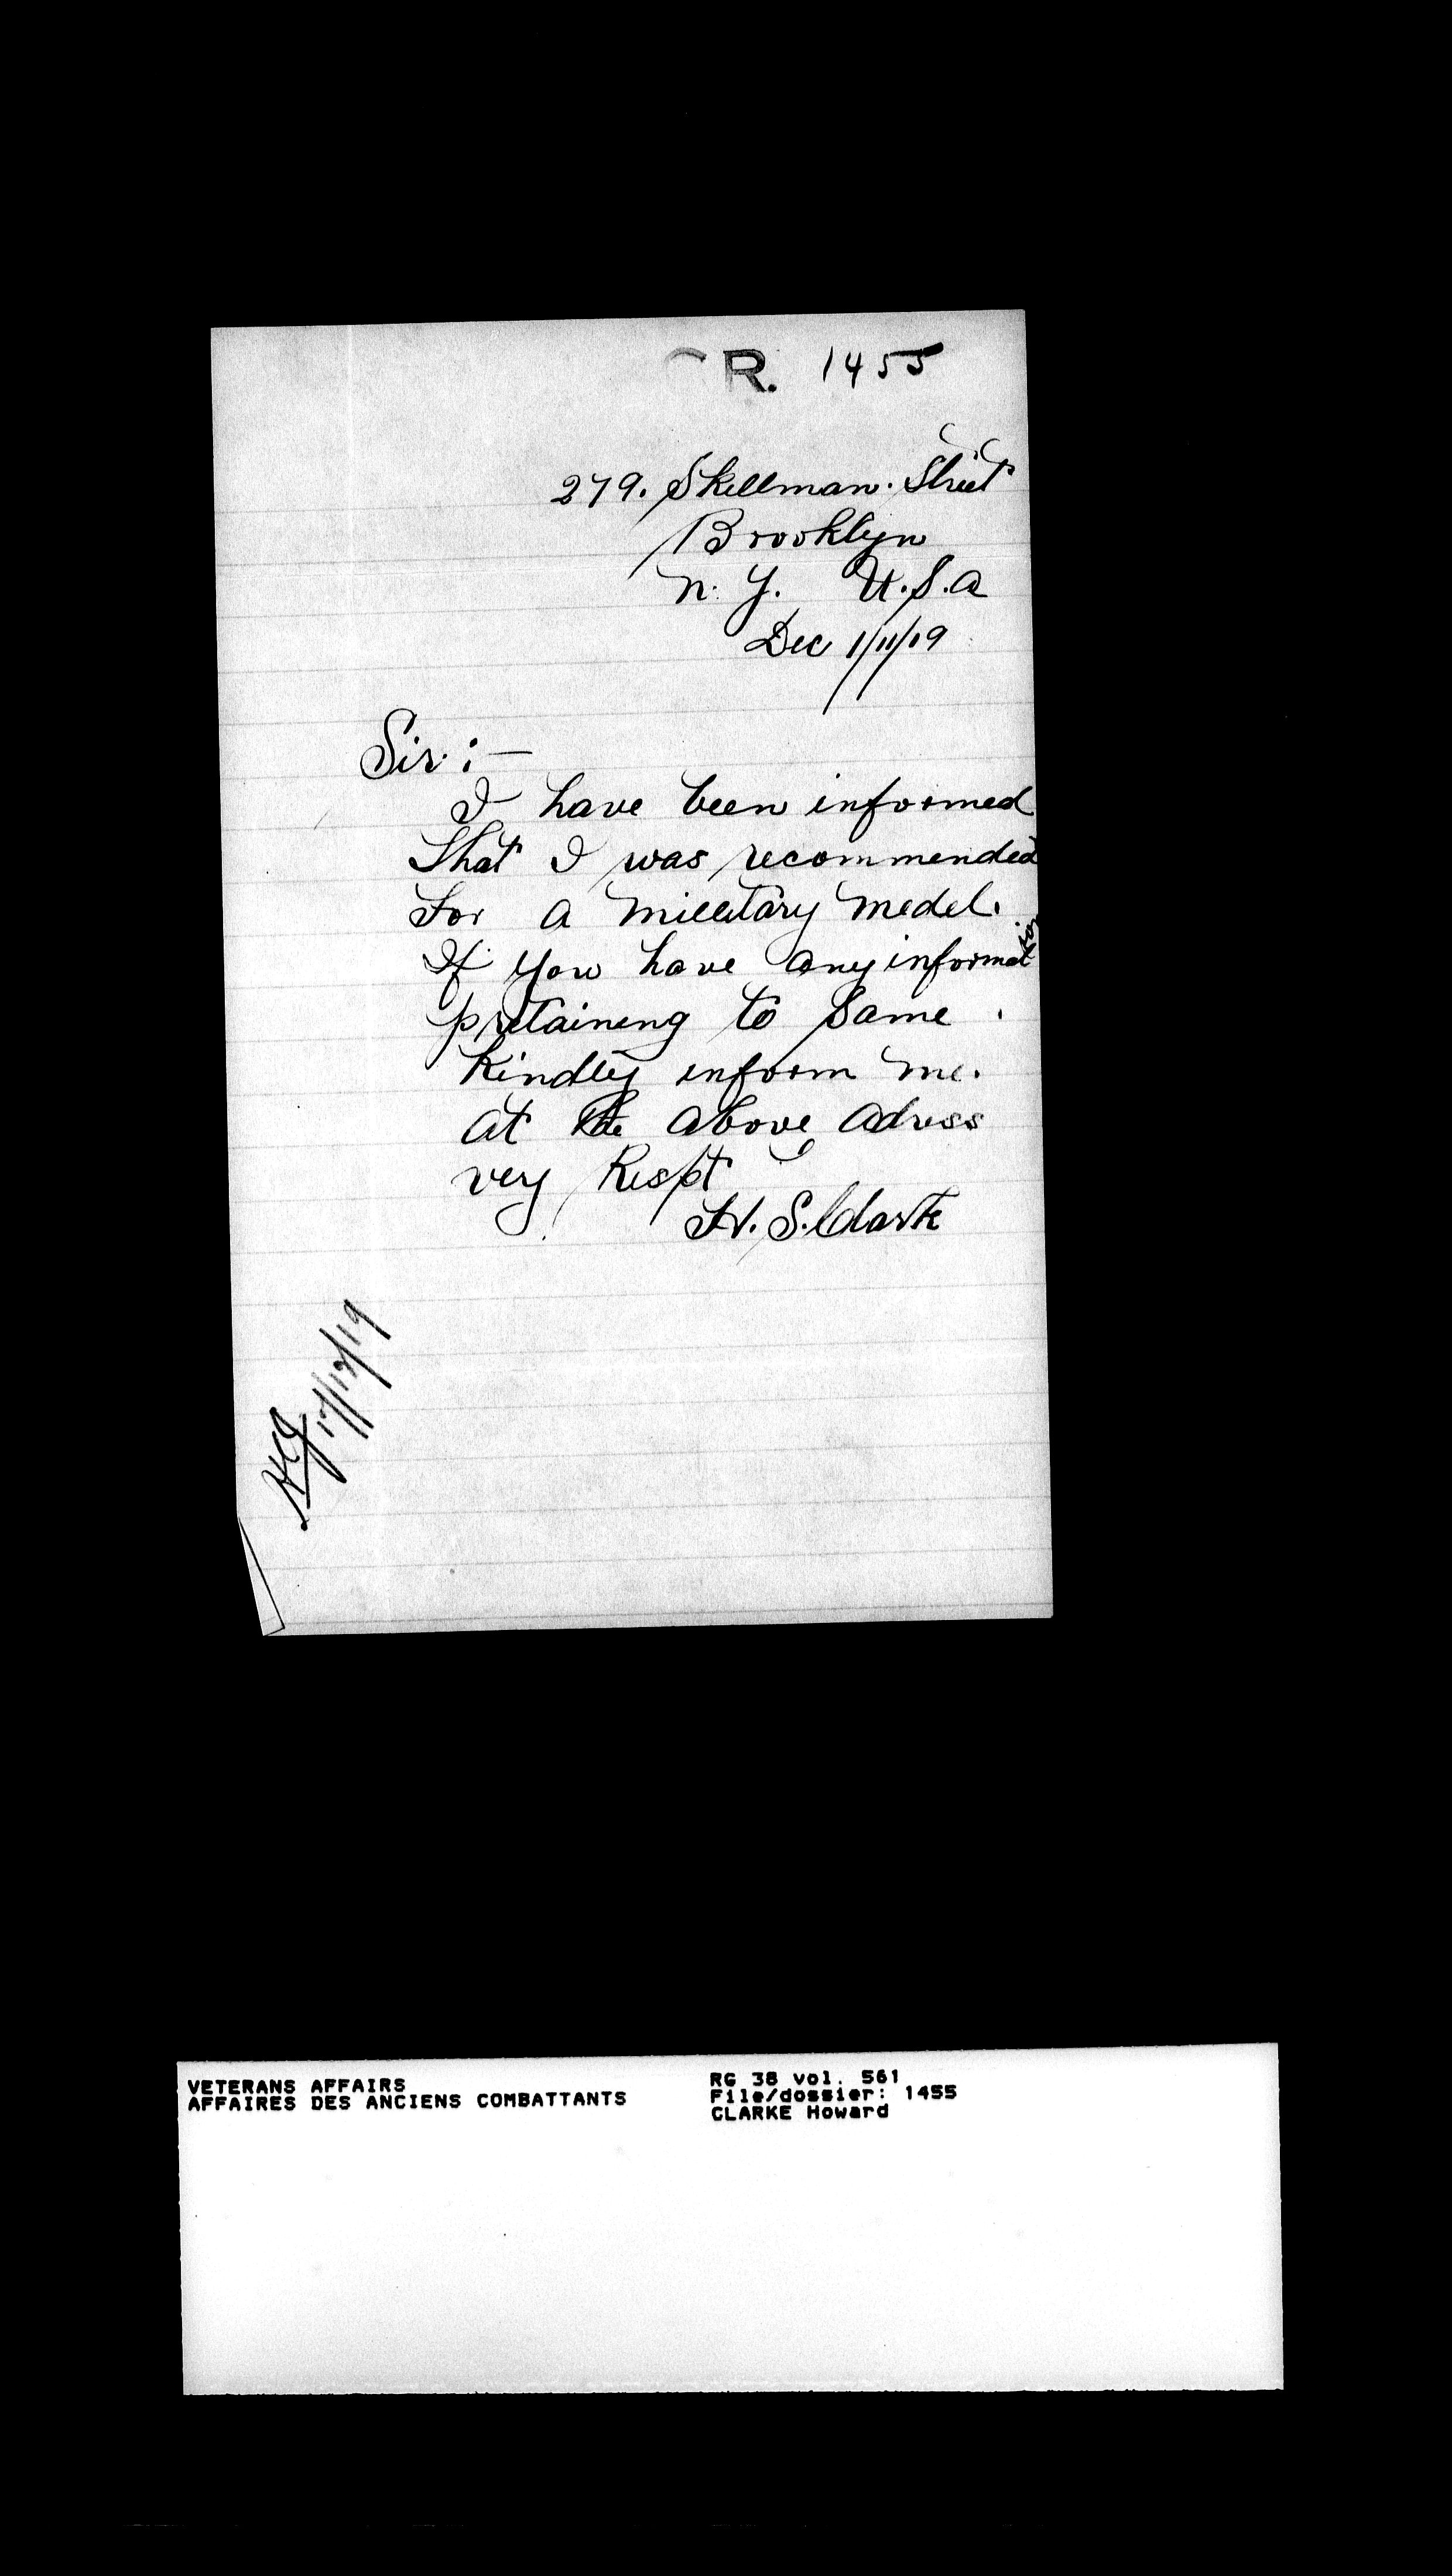 R. 1455
279. Skellman. Street
Brooklyn
N. Y. U.S.A
Dec 1/11/19
Sir:—
I have been informed
that I was recommended
for a millitary medel.
If you have any information
pretaining to same.
Kindly inform me.
at the above adress
very Respt
H. S. Clark
17/12/19
VETERANS AFFAIRS
AFFAIRES DES ANCIENS COMBATTANTS
RG 38 vol. 561
File/dossier: 1455
CLARKE Howard